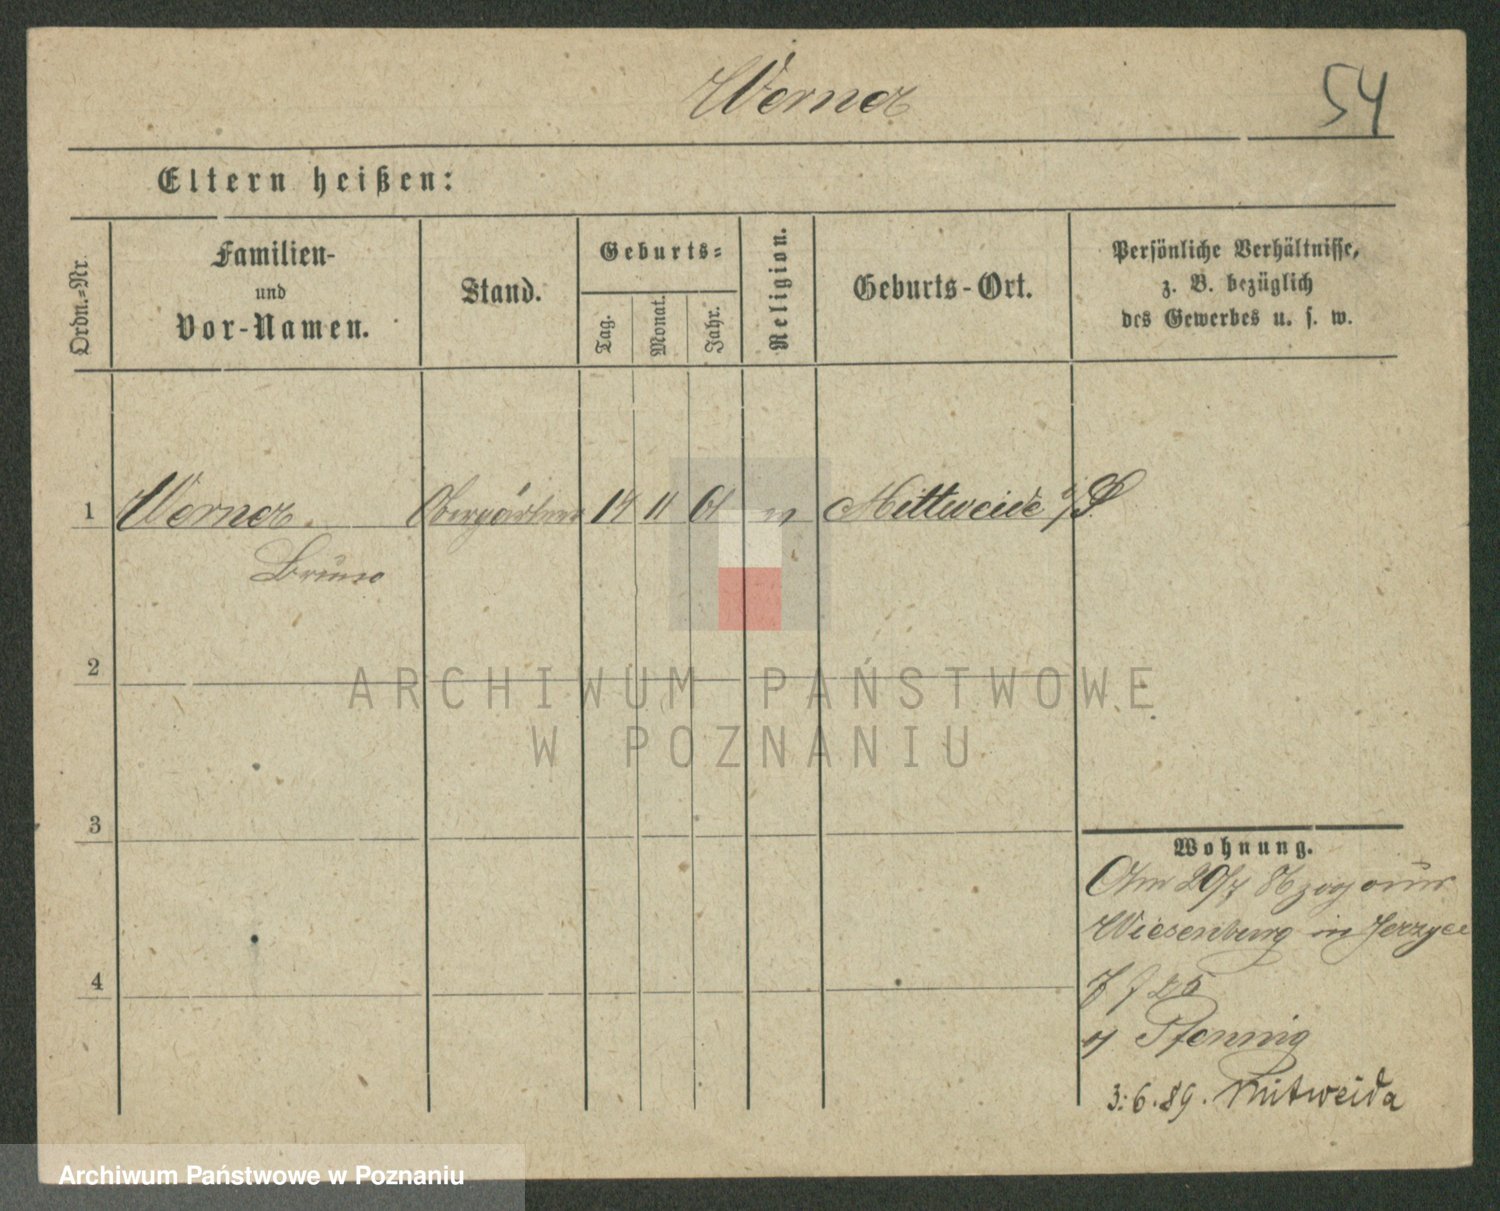 Werner
54
Eltern heißen:
Ordn.-Nr.
Familien-
und
Vor-Namen.
Stand.
Geburts-
Tag.
Monat.
Jahr.
Religion.
Geburts-Ort.
Persönliche Verhältnisse,
z. B. bezüglich
des Gewerbes u. s. w.
1 Werner Obergärtner 14 11 61 Mittweide i/S.
Bruno
2
ARCHIWUM PAŃSTWOWE
W POZNANIU
3
Wohnung.
Am 20/7 zog aus
Wiesenburg in Jerzyce
4
25
Pfennig
3.6.89. Mitweida
Archiwum Państwowe w Poznaniu